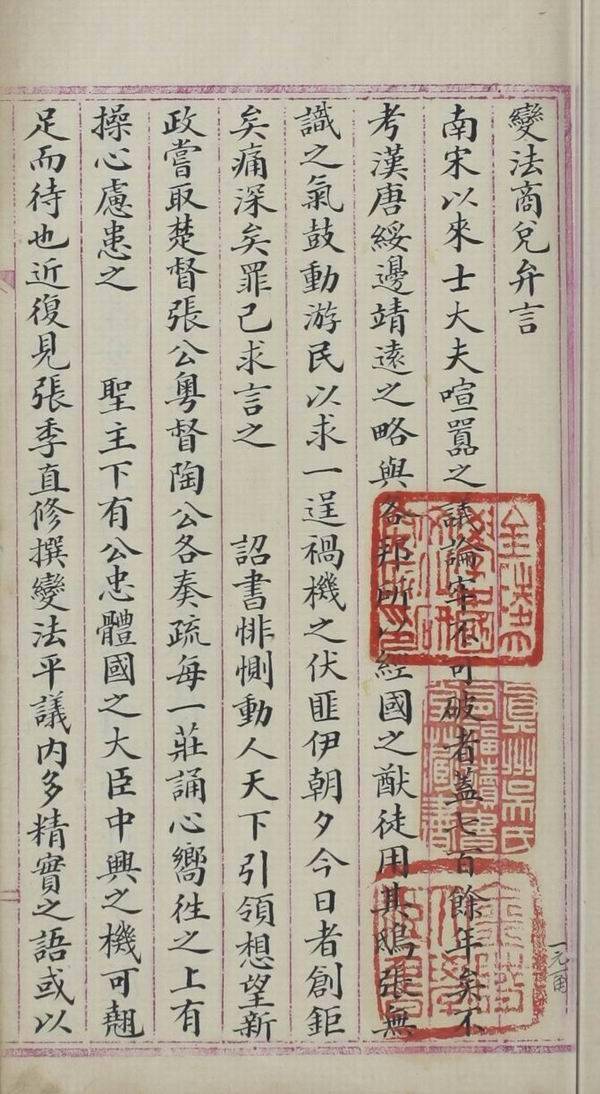 變法商兌弁言
南宋以來士大夫喧囂之議論牢不可破者蓋七百餘年矣不
考漢唐綏邊靖遠之略與各邦所以經國之猷徒用其鴟張無
識之氣鼓動游民以求一逞禍機之伏匪伊朝夕今日者創鉅
矣痛深矣罪己求言之　詔書悱惻動人天下引領想望新
政嘗取楚督張公粵督陶公各奏疏每一莊誦心嚮往之上有
操心慮患之　聖主下有公忠體國之大臣中興之機可翹
足而待也近復見張季直修撰變法平議內多精實之語或以